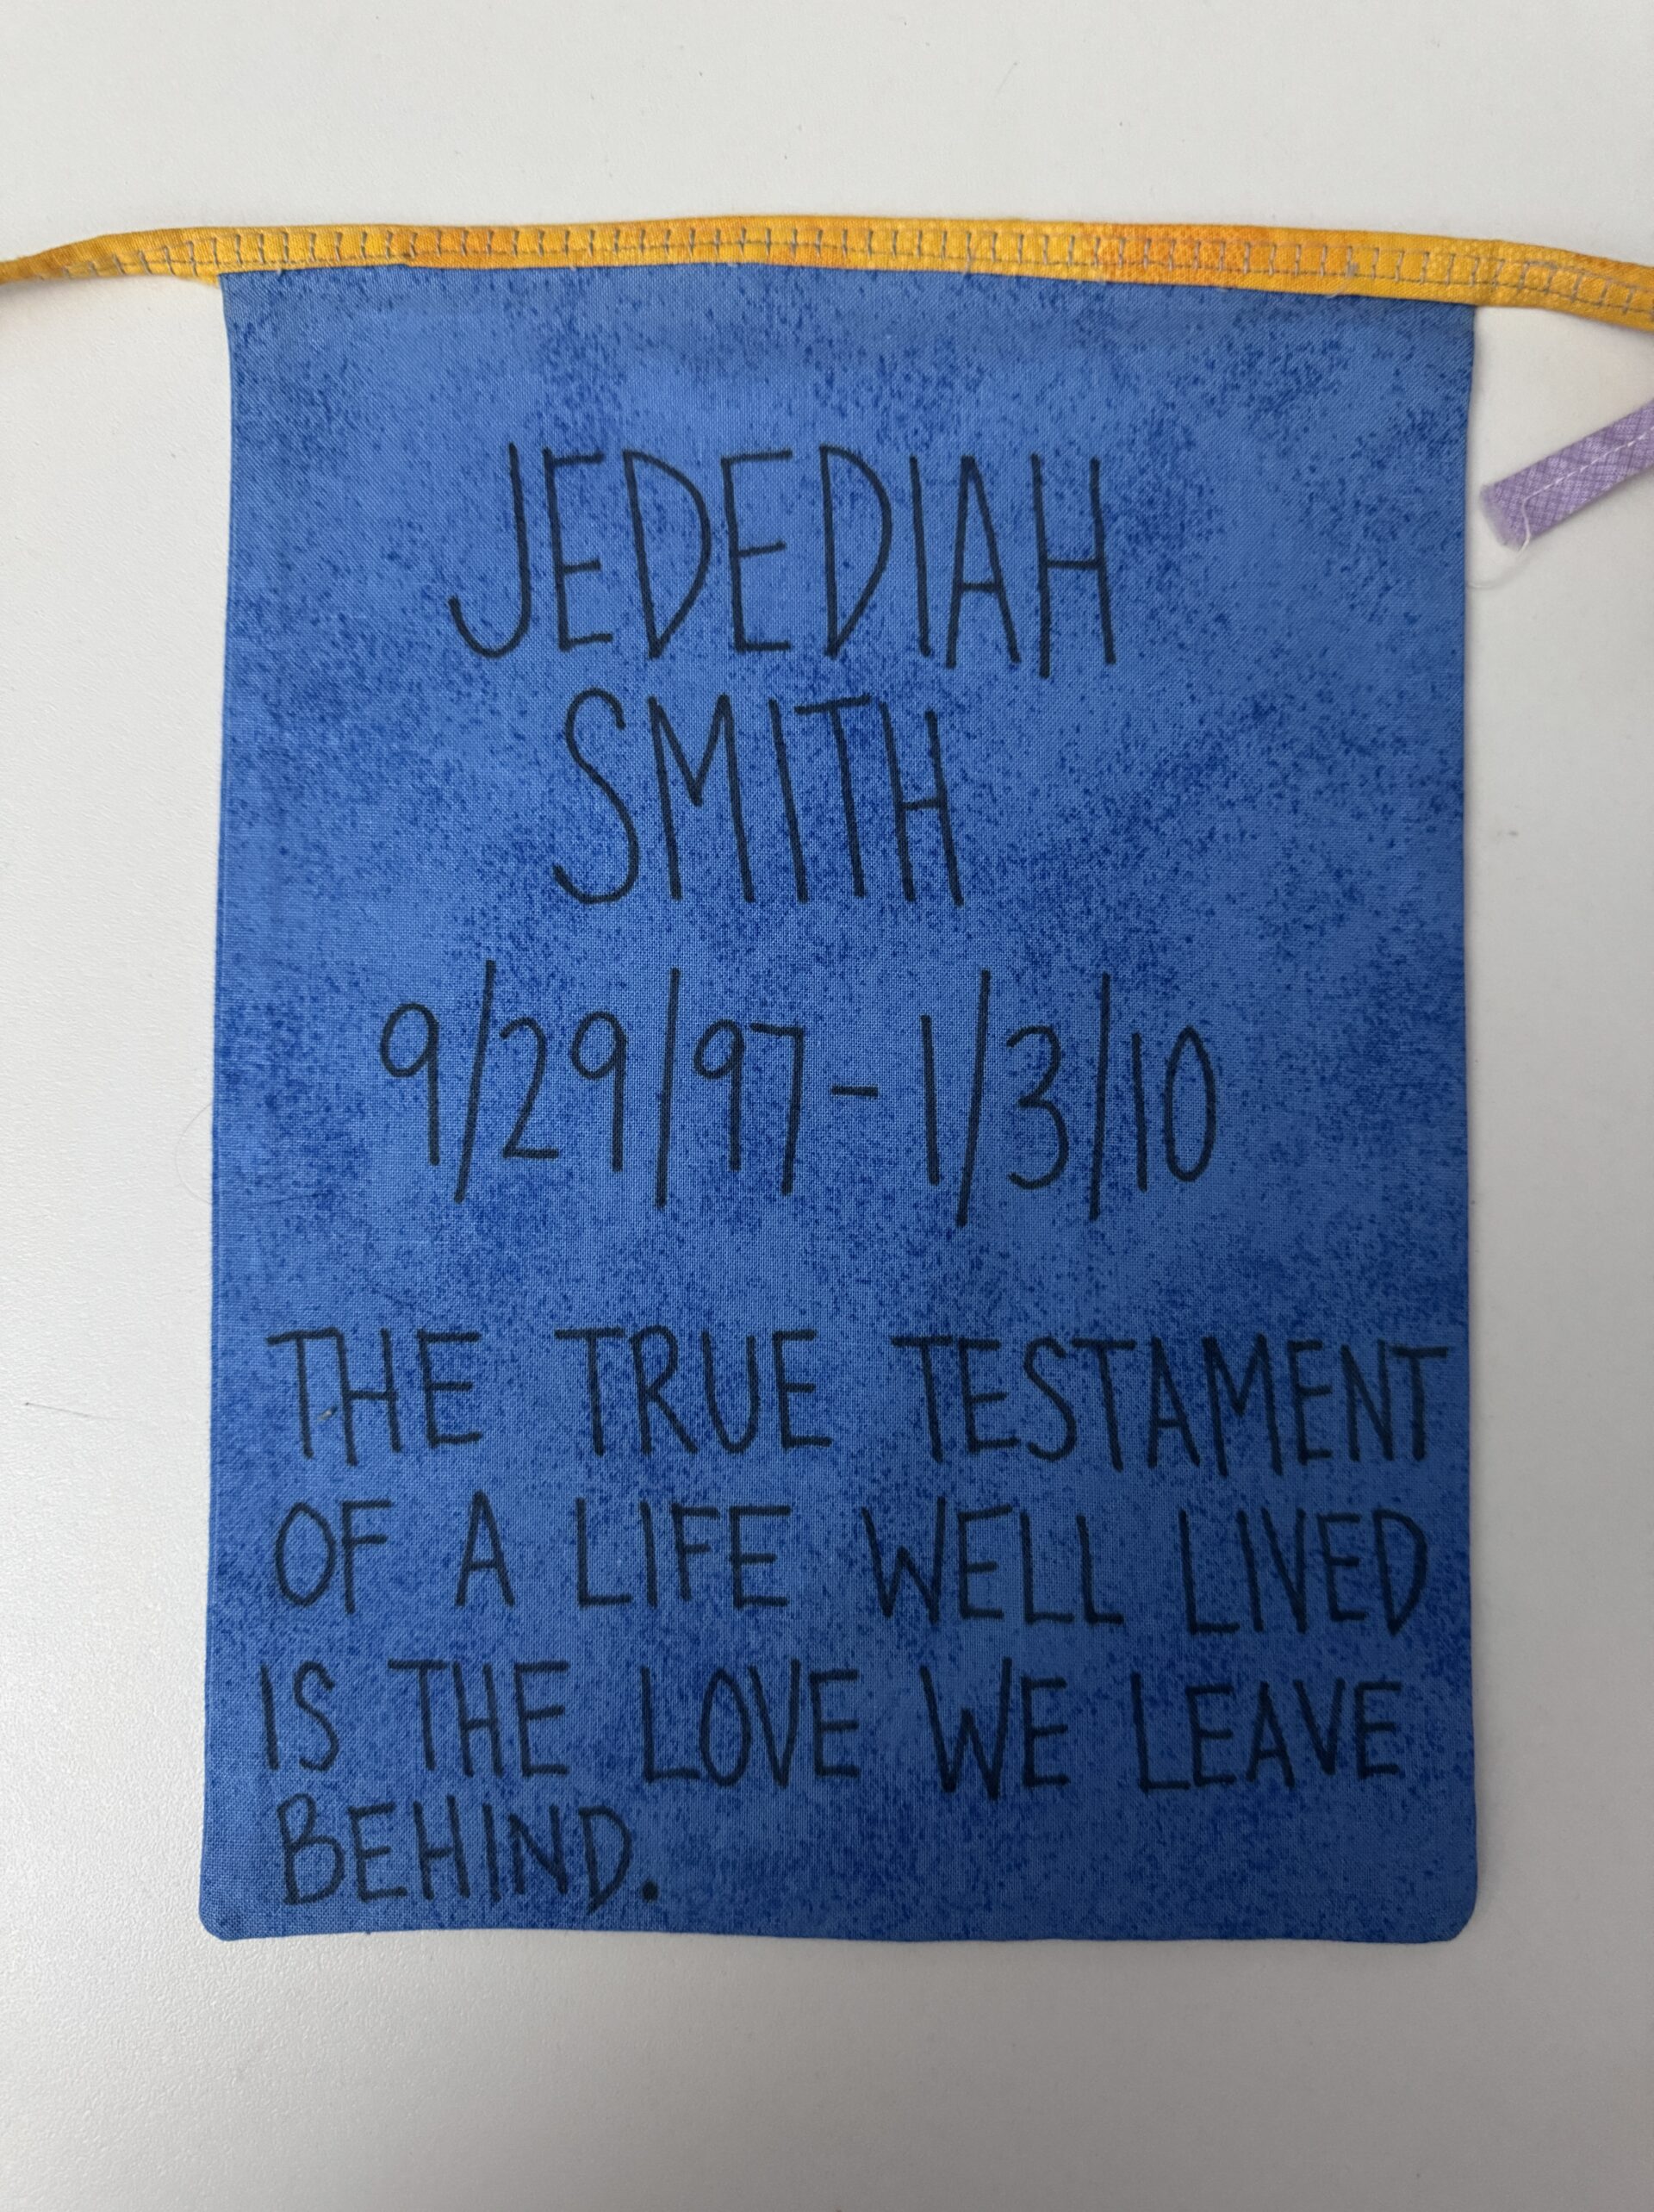 JEDEDIAH
SMITH
9/29/97-1/3/10
THE TRUE TESTAMENT
OF A LIFE WELL LIVED
IS THE LOVE WE LEAVE
BEHIND.